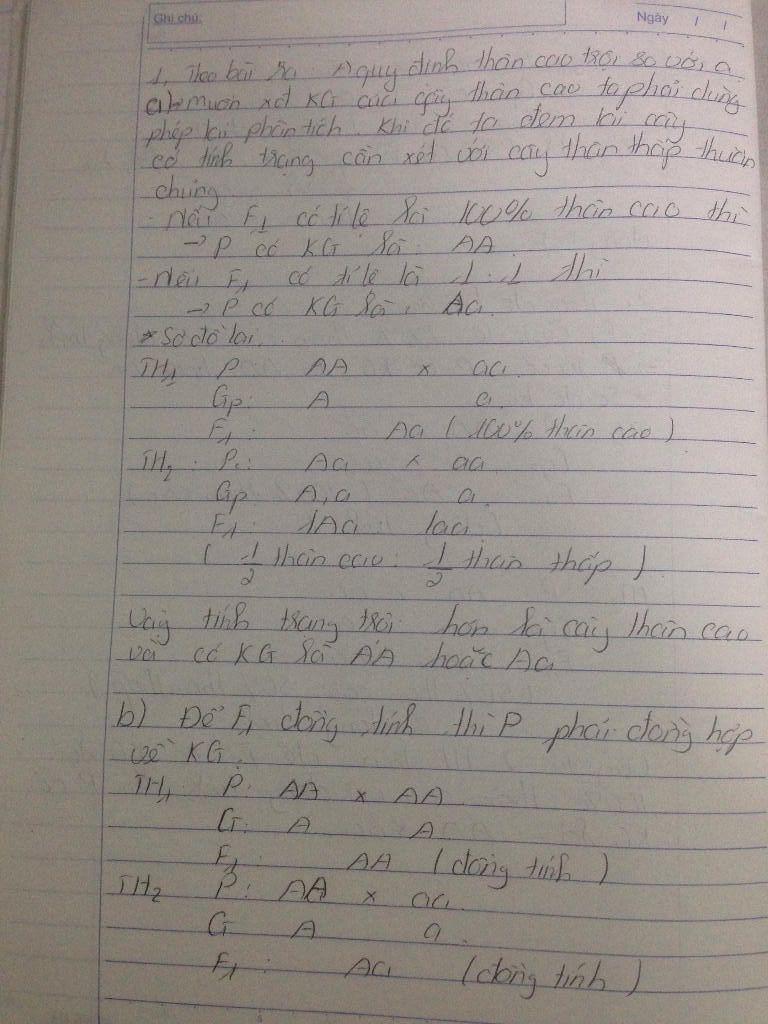 Ghi chú:
Ngày / /
1, Theo bài ra A quy định thân cao trội so với a.
a) muốn xét KG của cây thân cao ta phải dùng
phép lai phân tích. Khi đó ta đem lai cây
có tính trạng cần xét với cây thân thấp thuần
chủng
- Nếu F1 có tỉ lệ là 100% thân cao thì
→ P có KG là: AA
- Nếu F1 có tỉ lệ là 1:1 thì
→ P có KG là: Aa
* Sơ đồ lai.
TH1 P AA x aa.
Gp: A a
F1: Aa (100% thân cao)
TH2 P: Aa x aa
Gp A,a a
F1: 1Aa 1aa
(1/2 thân cao: 1/2 thân thấp)
Vậy tính trạng trội hơn là cây thân cao
và có KG là AA hoặc Aa
b) Để F1 đồng tính thì P phải đồng hợp
về KG.
TH1 P: AA x AA
G: A A
F1: AA (đồng tính)
TH2 P: AA x aa
G A a.
F1: Aa (đồng tính)